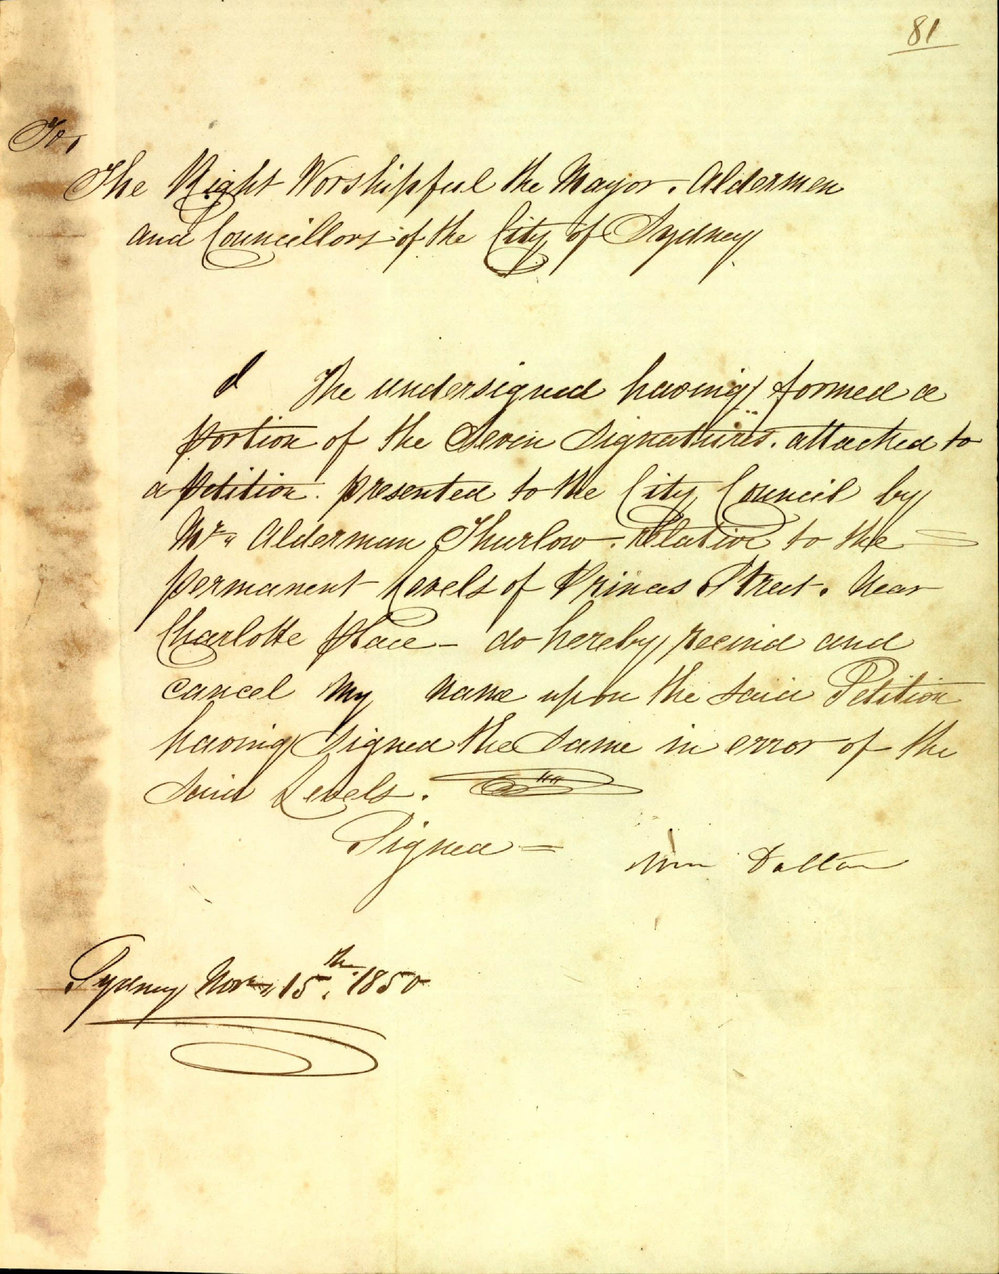 81
To,
The Right Worshipful the Mayor. Aldermen
and Councillors of the City of Sydney
I The undersigned having formed a
portion of the Seven Signatures. attached to
a petition. presented to the City Council by
Mr. Alderman Thurlow. relative to the
permanent Levels of Princes Street. Near
Charlotte place - do hereby recind and
cancel My name upon the said Petition
having Signed the Same in error of the
said Levels.
Signed = Wm Dalton
Sydney Novr. 15th. 1850